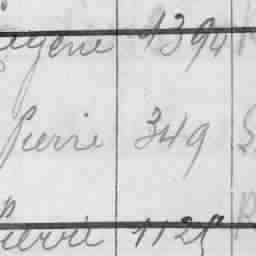 Eugène 1394
Pierre 349
Pierre 1125